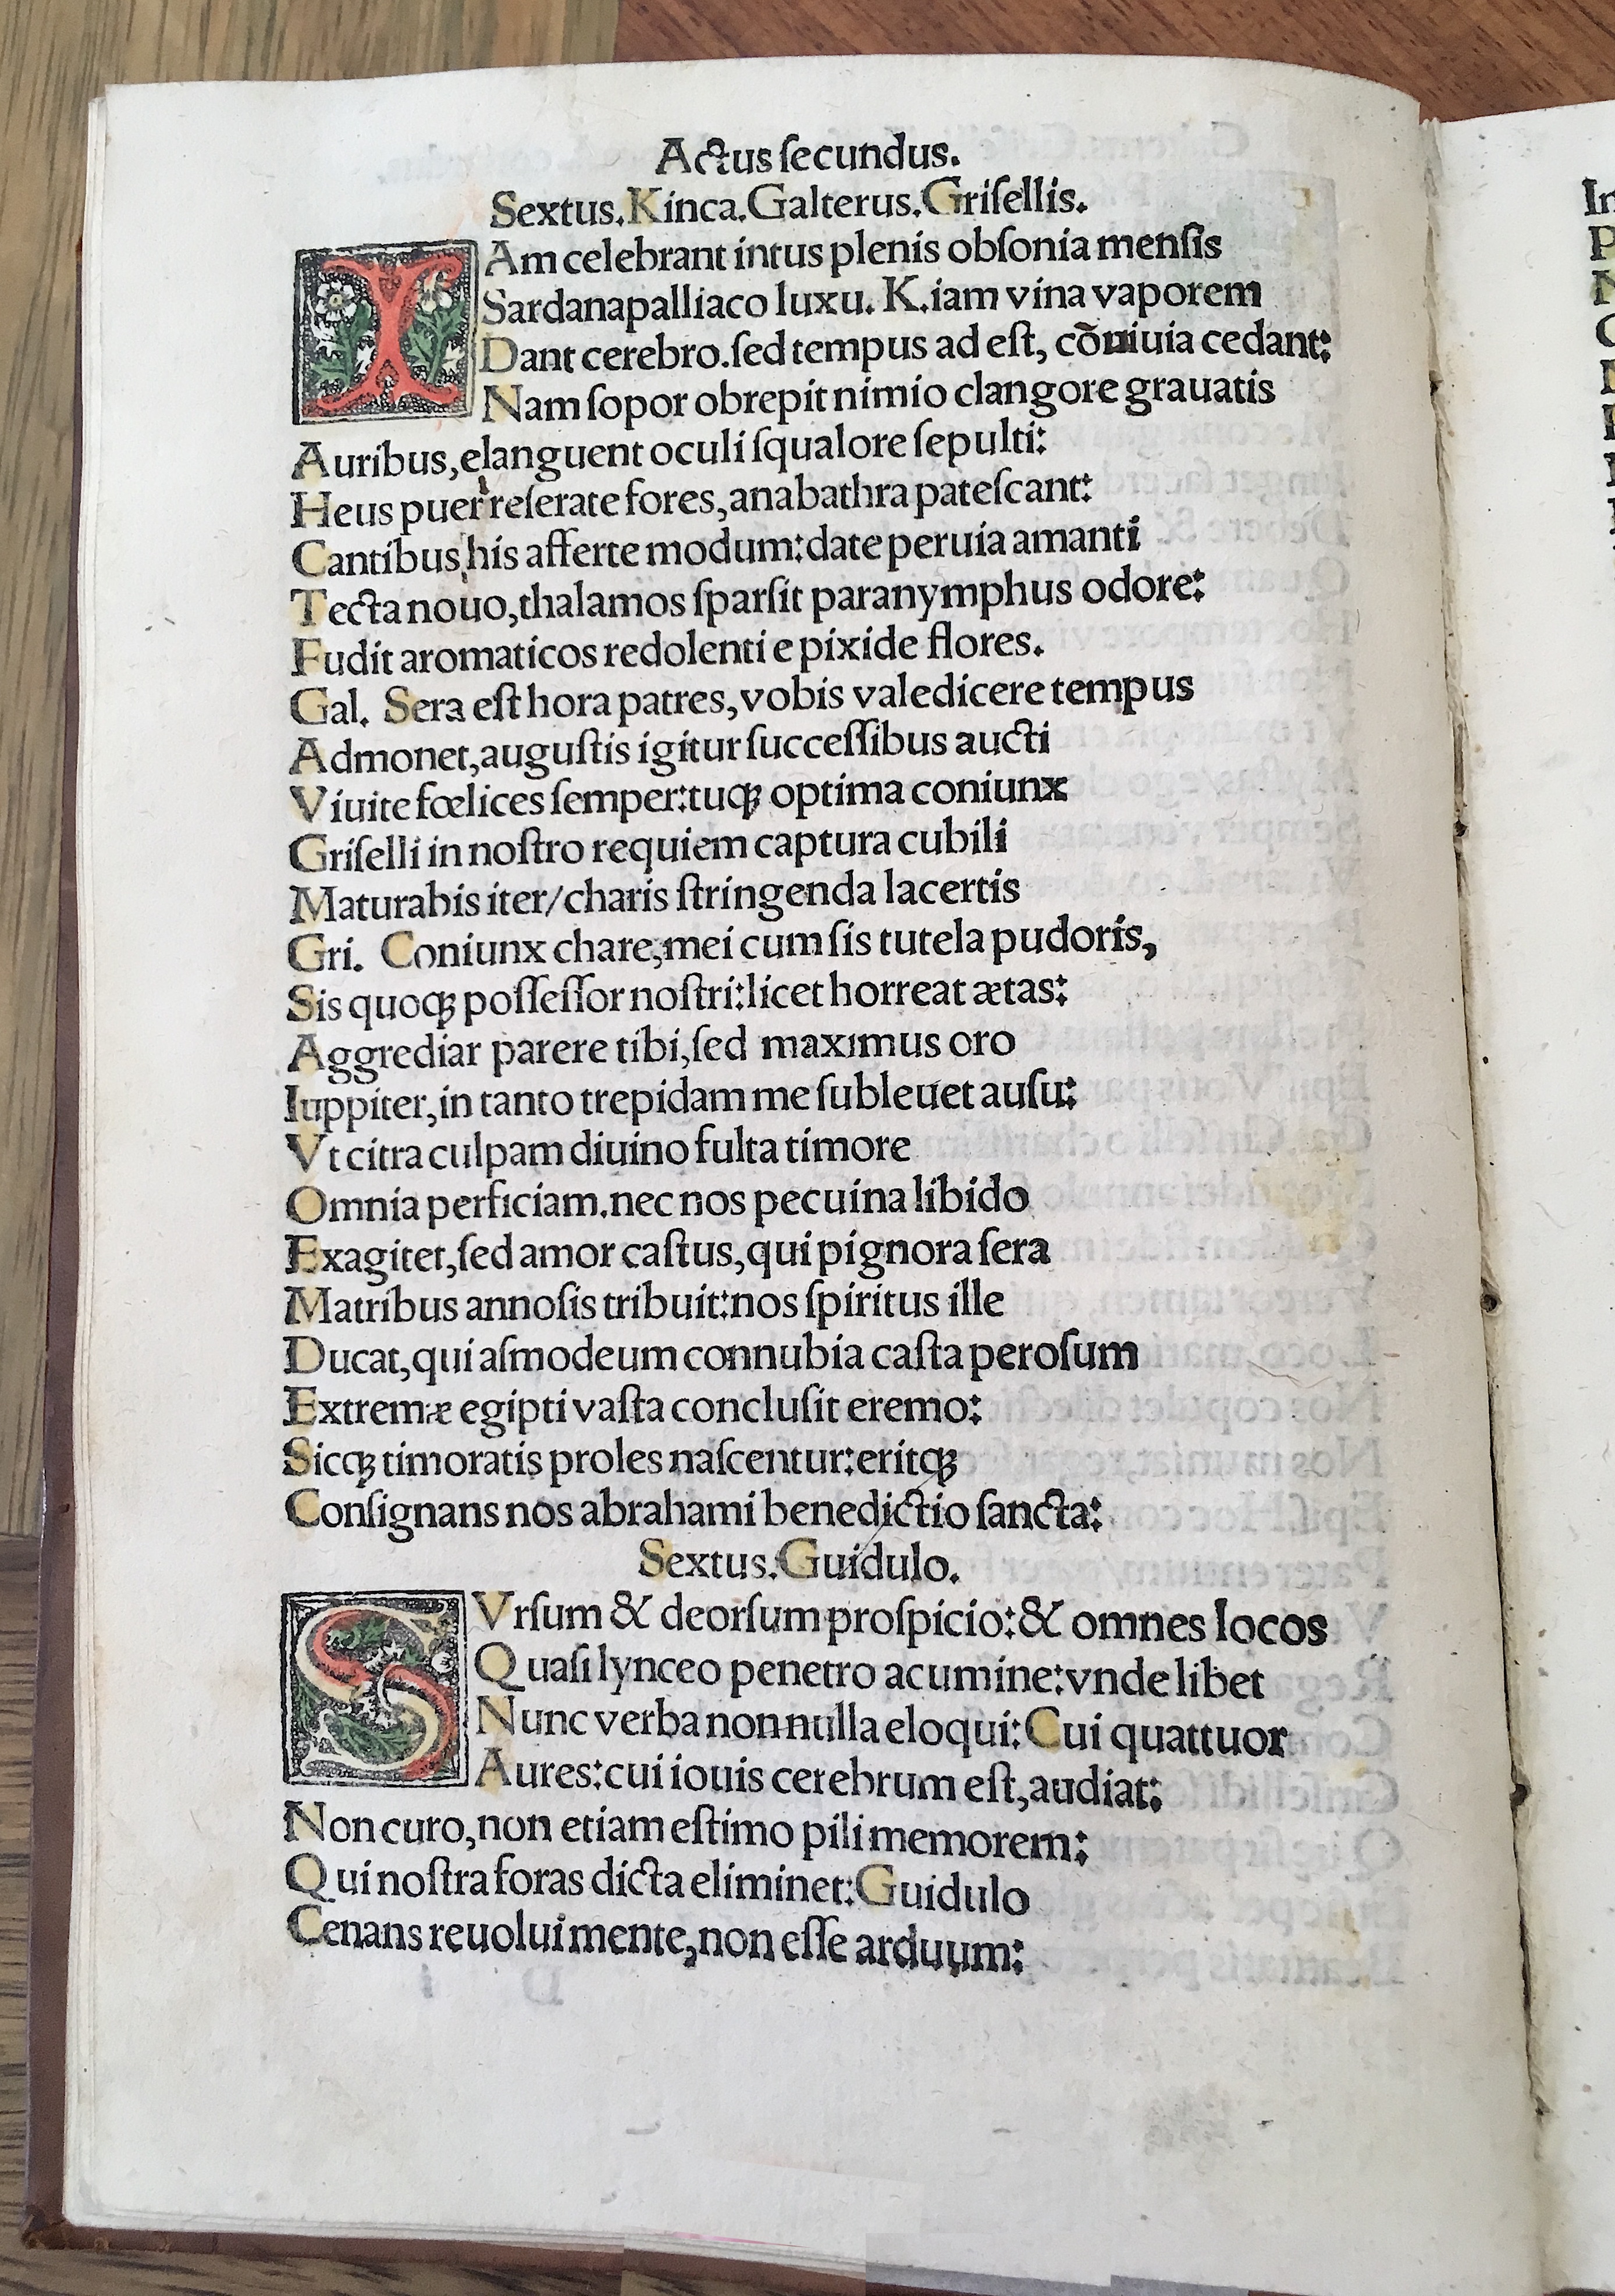 Actus ſecundus.
Sextus.Kinca.Galterus.Griſellis.
IAm celebrant intus plenis obſonia menſis
Sardanapalliaco luxu. K.iam vina vaporem
Dant cerebro.ſed tempus ad eſt, cõuiuia cedant:
Nam ſopor obrepit nimio clangore grauatis
Auribus,elanguent oculi ſqualore ſepulti:
Heus puer reſerate fores,anabathra pateſcant:
Cantibus his afferte modum:date peruia amanti
Tecta nouo,thalamos ſparſit paranymphus odore:
Fudit aromaticos redolenti e pixide flores.
Gal. Sera eſt hora patres,vobis valedicere tempus
Admonet,auguſtis igitur ſucceſſibus aucti
Viuite fœlices ſemper:tuqꝫ optima coniunx
Griſelli in noſtro requiem captura cubili
Maturabis iter/charis ſtringenda lacertis
Gri. Coniunx chare,mei cum ſis tutela pudoris,
Sis quoqꝫ poſſeſſor noſtri:licet horreat ætas:
Aggrediar parere tibi,ſed maximus oro
Iuppiter,in tanto trepidam me ſubleuet auſu:
Vt citra culpam diuino fulta timore
Omnia perficiam.nec nos pecuina libido
Exagitet,ſed amor caſtus,qui pignora ſera
Matribus annoſis tribuit:nos ſpiritus ille
Ducat,qui aſmodeum connubia caſta peroſum
Extremæ egipti vaſta concluſit eremo:
Sicqꝫ timoratis proles naſcentur:eritqꝫ
Conſignans nos abrahami benedictio ſancta:
Sextus.Guidulo.
SVrſum & deorſum proſpicio:& omnes locos
Quaſi lynceo penetro acumine:vnde libet
Nunc verba non nulla eloqui:Cui quattuor
Aures:cui iouis cerebrum eſt,audiat:
Non curo,non etiam eſtimo pili memorem:
Qui noſtra foras dicta eliminet:Guidulo
Cenans reuolui mente,non eſſe arduum: